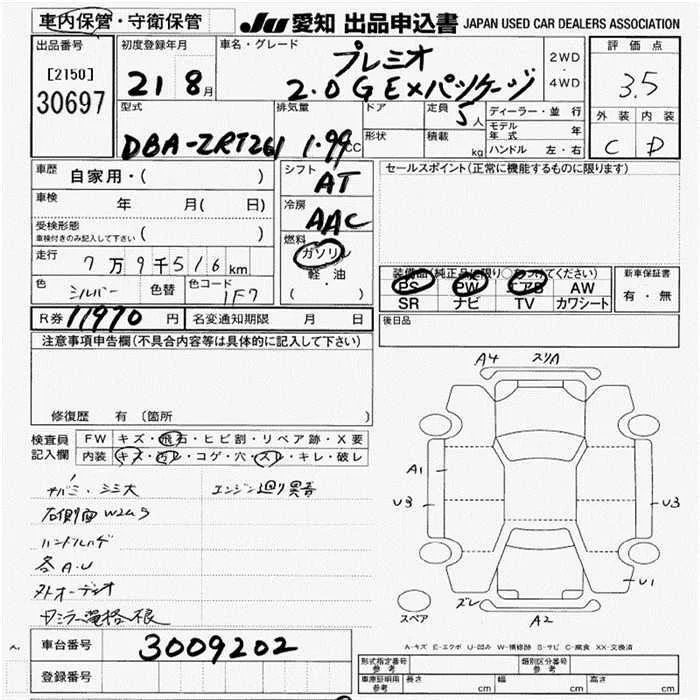 車内保管・守衛保管
JU 愛知 出品申込書 JAPAN USED CAR DEALERS ASSOCIATION
出品番号
[2150]
30697
初度登録年月
21 8月
車名・グレード
プレミオ
2.0 G EXパッケージ
2WD
・
4WD
評価点
3.5
外装 内装
C D
型式
DBA-ZRT261
排気量
1.99CC
ドア
形状
定員
5人
積載
kg
ディーラー・並行
モデル年式 年
ハンドル 左・右
車歴
自家用・( )
車検
年 月( 日)
受検形態
車検付きのみ記入して下さい ( )
走行
7万9千516km
色 シルバー 色替 色コード 1F7
シフト
AT
冷房
AAC
燃料
ガソリン
・
軽油
( )
セールスポイント(正常に機能するものに限ります)
装備品(純正品に限り○をつけてください)
PS PW エアB AW
SR ナビ TV カワシート
新車保証書
有・無
R券 11970 円 名変通知期限 月 日
後日品
注意事項申告欄(不具合内容等は具体的に記入して下さい)
修復歴 有 〔箇所
検査員
記入欄
FW キズ・飛石・ヒビ割・リペア跡・X要
内装 キズ・汚レ・コゲ・穴・スレ・キレ・破レ
エンジン廻り異音
右側面W2US
ハンドルハゲ
各A・U
A4 スリA
A1
U3
U3
U1
ズレ
A2
スペア
A-キズ E-エクボ U-凹み W-補修跡 S-サビ C-腐食 XX-交換済
車台番号 3009202
登録番号
形式指定番号
参考
類別区分番号
参考
車庫証明用
参考
長さ cm 幅 cm 高さ cm